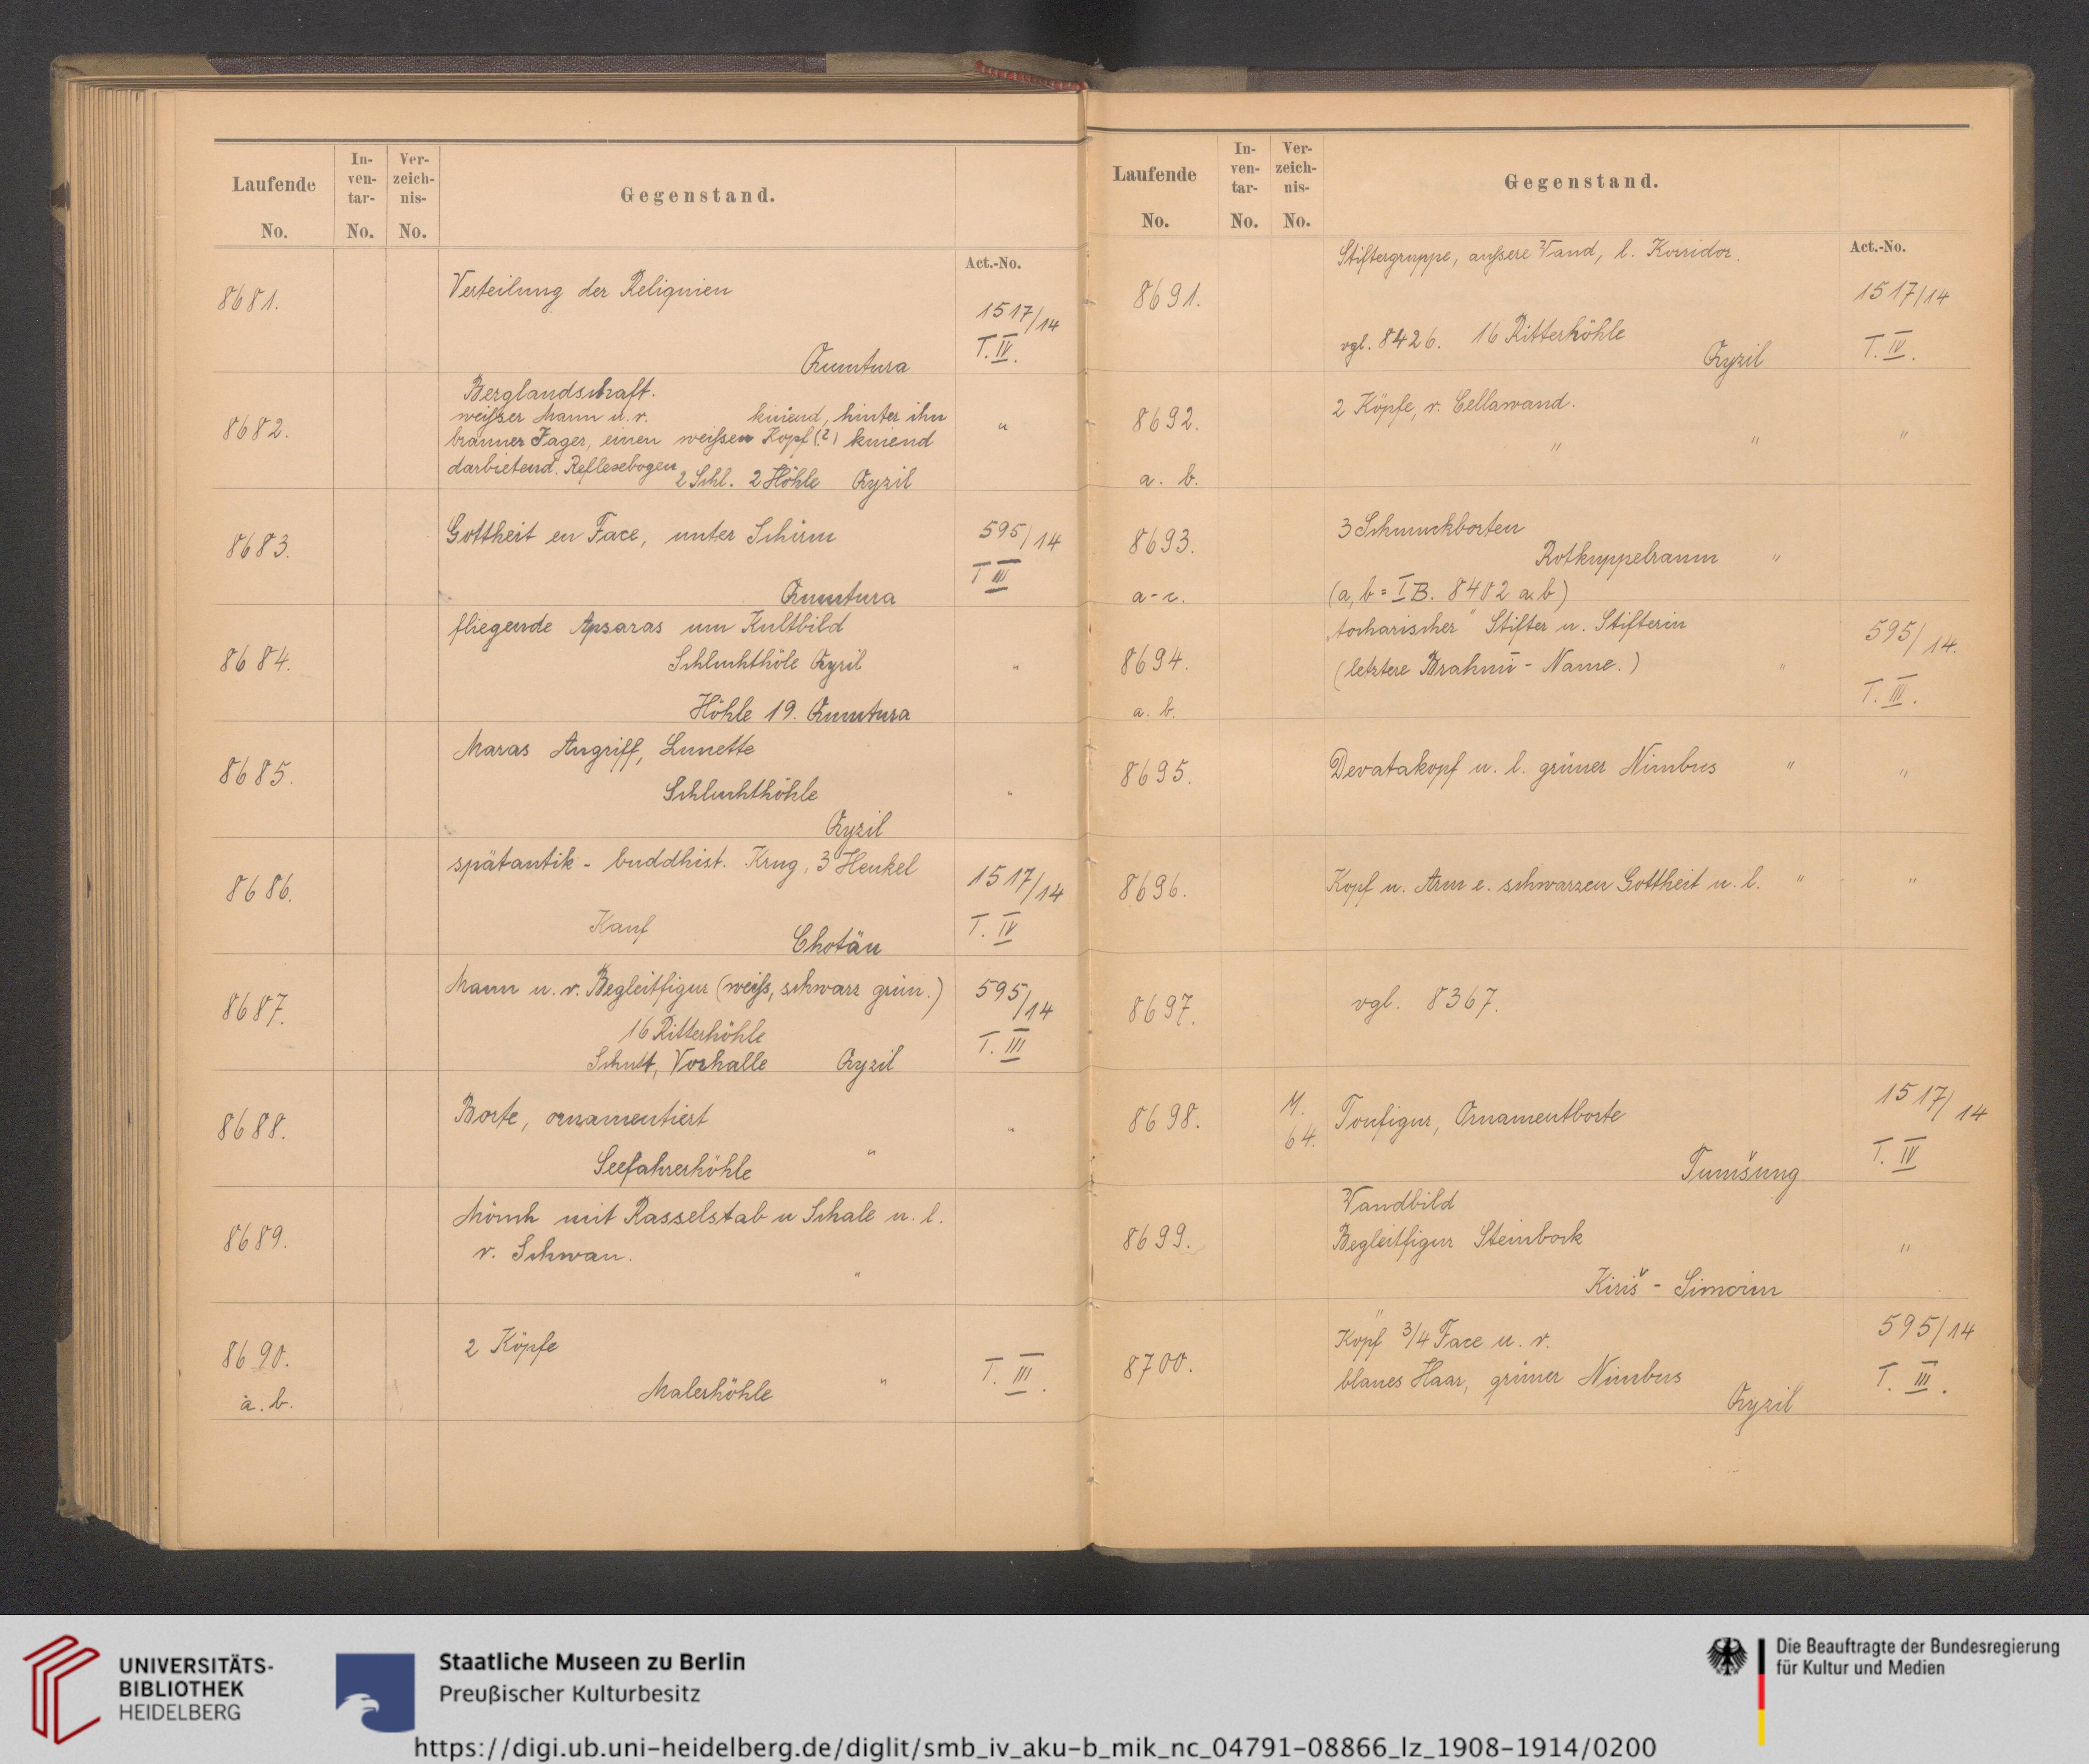 Laufende No.
In-ven-tar-No.
Ver-zeich-nis-No.
Gegenstand.
Act.-No.
8681.
Verteilung der Reliquien
Qumtura
1517/14
T. IV.
8682.
Berglandschaft.
weißer Mann u. r. knieend, hinter ihm
brauner Jager, einen weißen Kopf (?) kniend
darbietend. Reflexebogen
2 Schl. 2 Höhle Qyzil
"
8683.
Gottheit en Face, unter Schirm
Qumtura
595/14
T III
8684.
fliegende Apsaras um Kultbild
Schluchthöle Qyzil
"
Höhle 19. Qumtura
8685.
Maras Angriff, Lunette
Schluchthöhle
"
Qyzil
8686.
spätantik - buddhist. Krug, 3 Henkel
Kauf
Chotän
1517/14
T. IV
8687.
Mann u. r. Begleitfigur (weiss, schwarz grün.)
16 Ritterhöhle
Schutt, Vorhalle Qyzil
595/14
T. III
8688.
Borte, ornamentiert
"
Seefahrerhöhle "
8689.
Mönch mit Rasselstab u Schale u. l.
r. Schwan.
"
8690.
a. b.
2 Köpfe
Malerhöhle "
T. III.
Laufende No.
In-ven-tar-No.
Ver-zeich-nis-No.
Gegenstand.
Act.-No.
8691.
Stiftergruppe, außere Wand, l. Korridor.
vgl. 8426. 16 Ritterhöhle
Qyzil
1517/14
T. IV.
8692.
a. b.
2 Köpfe, r. Cellawand.
" " "
8693.
a-c.
3 Schmuckborten
Rotkuppelraum "
(a, b = IB. 8402 a b)
8694.
a. b.
"tocharischer" Stifter u. Stifterin
(letztere Brahmī-Name.) "
595/14.
T. III.
8695.
Devatakopf u. l. grüner Nimbus " "
8696.
Kopf u. Arm e. schwarzen Gottheit u. l. " "
8697.
vgl. 8367.
8698.
M. 64.
Tonfigur, Ornamentborte
Tumšung
1517/14
T. IV
8699.
Wandbild
Begleitfigur Steinbock
"
Kiriš - Simoim
8700.
"
Kopf 3/4 Face u. r.
blaues Haar, grüner Nimbus
Qyzil
595/14
T. III.
UNIVERSITÄTS-
BIBLIOTHEK
HEIDELBERG
Staatliche Museen zu Berlin
Preußischer Kulturbesitz
Die Beauftragte der Bundesregierung
für Kultur und Medien
https://digi.ub.uni-heidelberg.de/diglit/smb_iv_aku-b_mik_nc_04791-08866_lz_1908-1914/0200